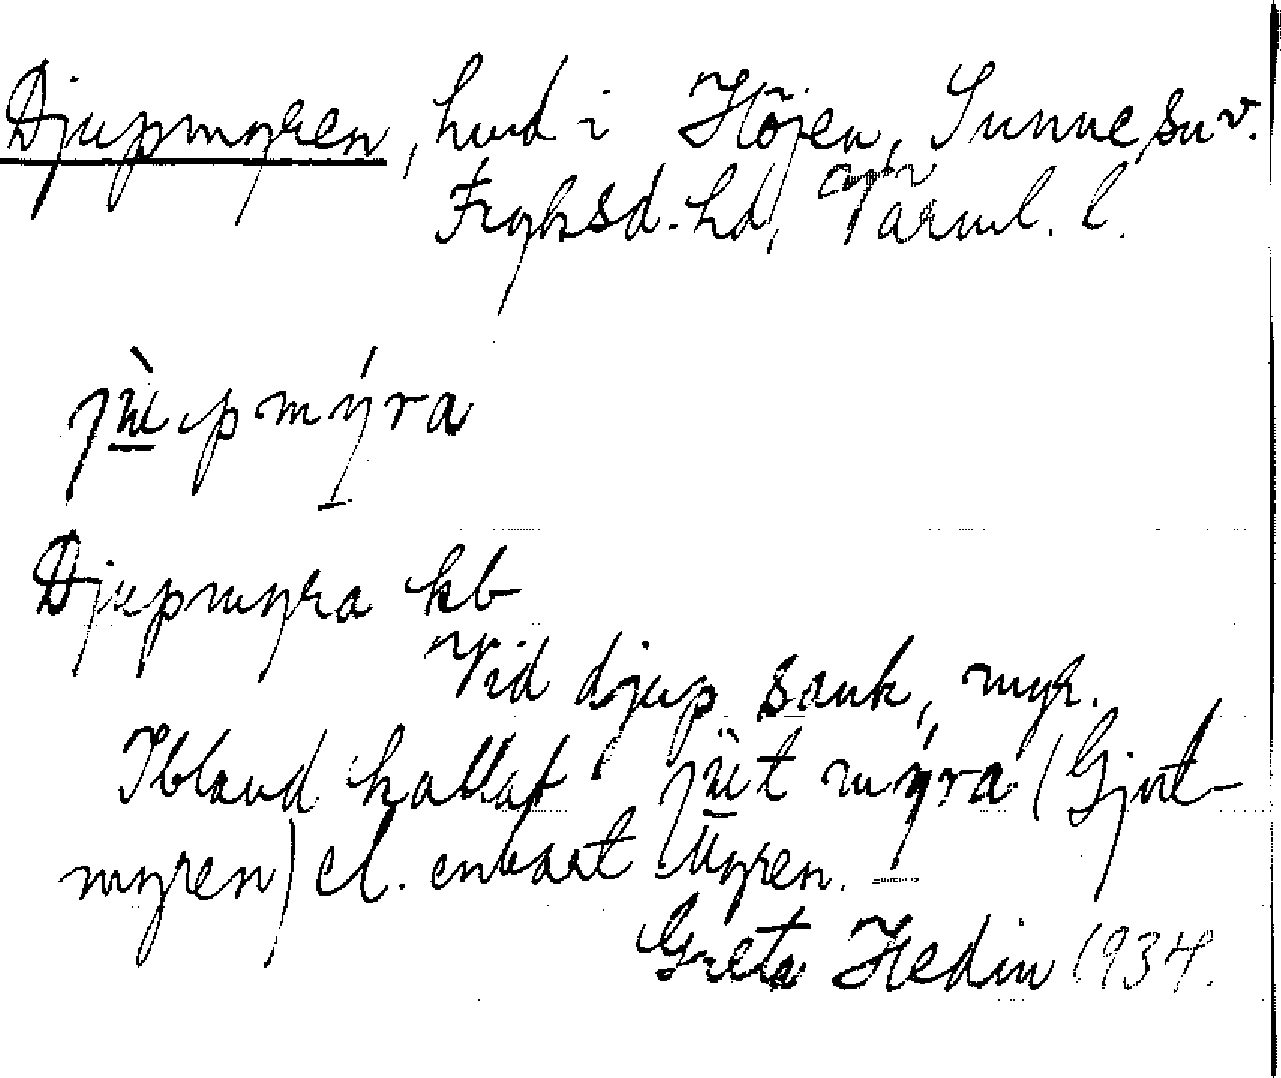 Djupmyren, hmd i Höjen, Sunne sn v.
Fryksd. hd, Värml. l.
jùpmýra
Djupmyra kb
Vid djup, sank, myr.
Ibland kallat jùt mýra (Gjut-
myren) el. enbart Myren.
Greta Hedin 1934.